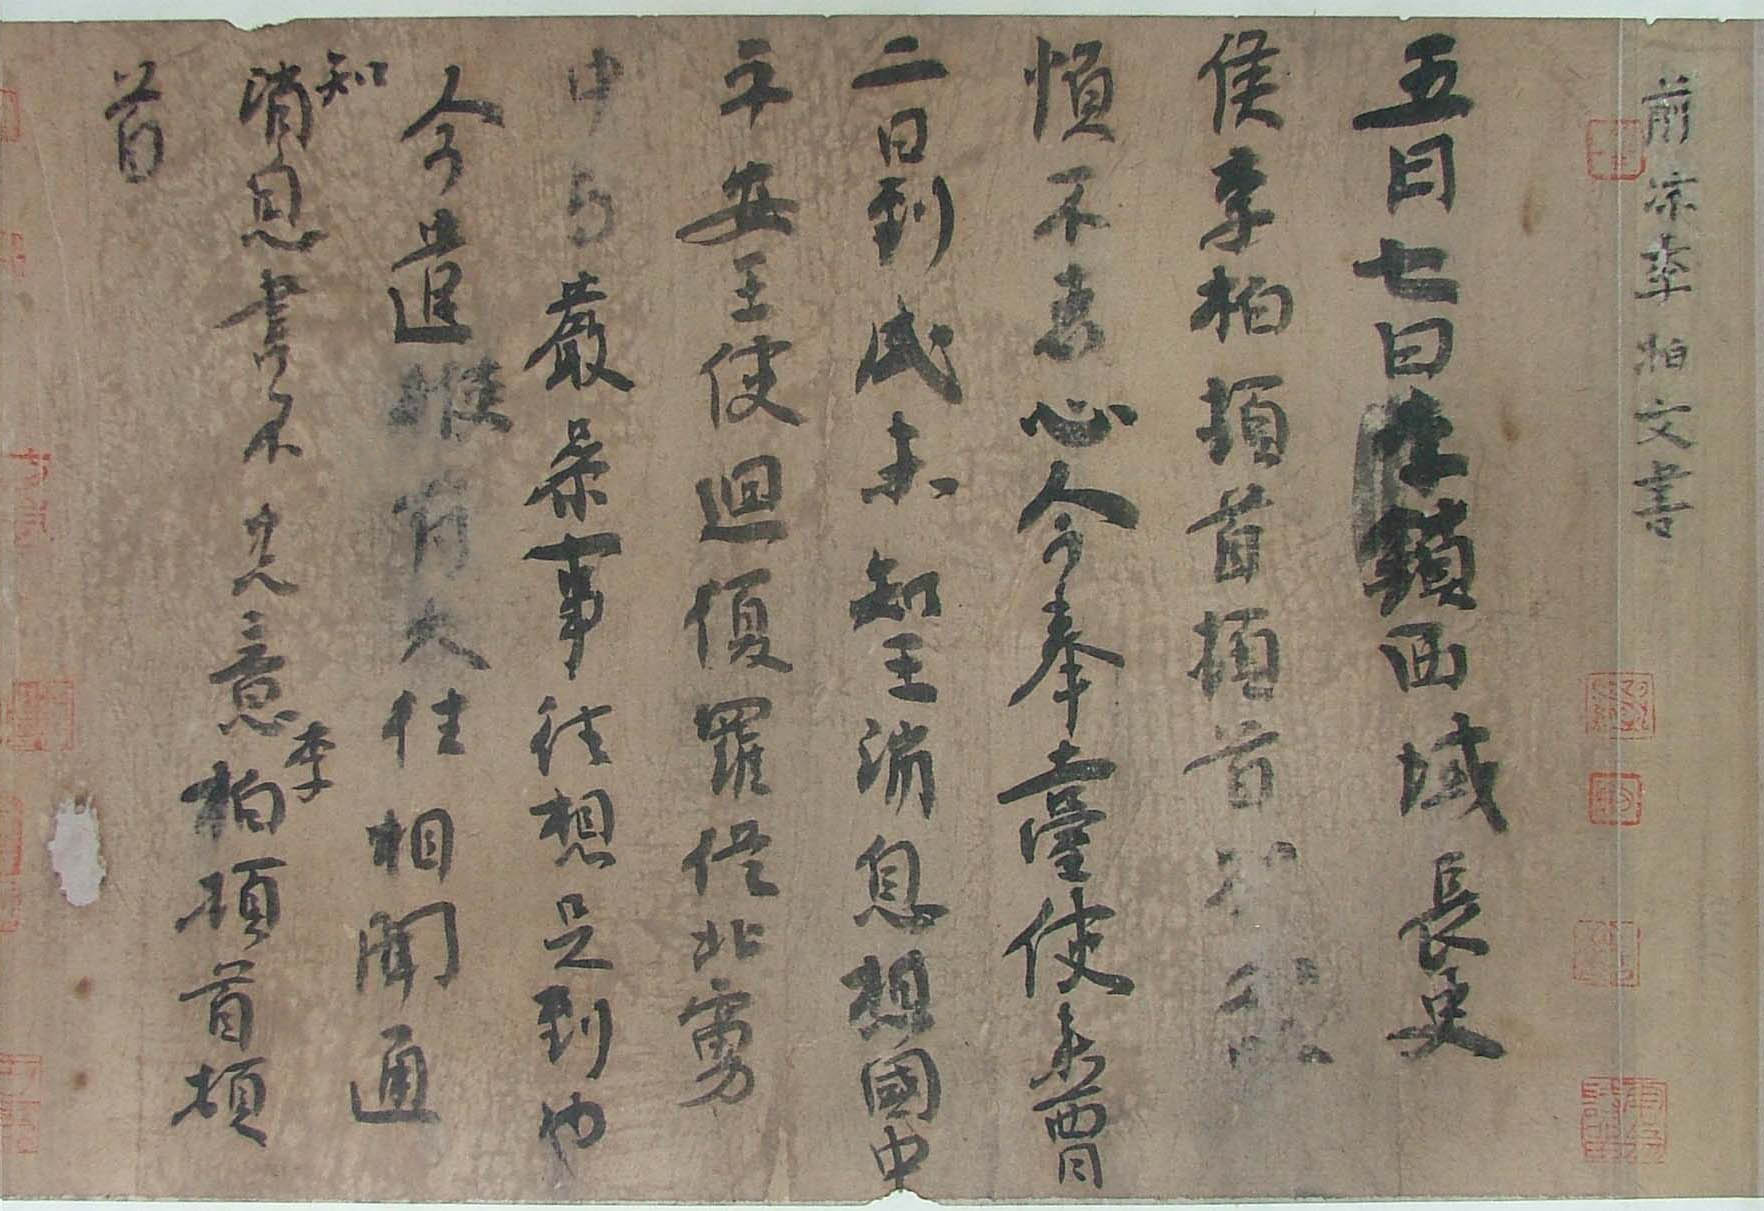 前凉李柏文書
五月七日西域長史
侯李柏頓首頓首
恒不去心今奉臺使來西月
二日到此未知王消息想國中
平安王使迴復羅從北虜
中与嚴參事往想是到也
今遣使苻大往相聞通
知消息書不悉意李柏頓首頓
首